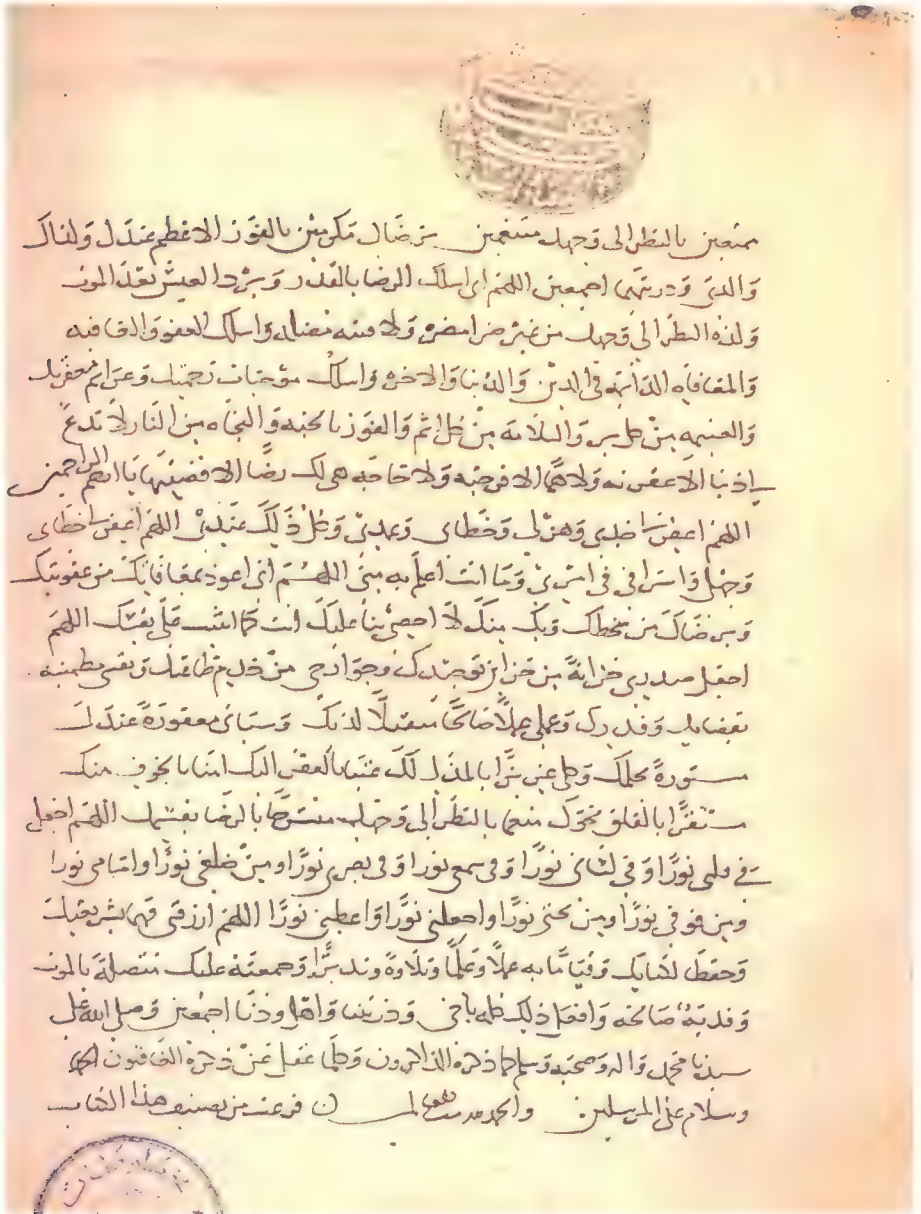 ممتعين بالنظر الى وجهك متنعمين برضاك مكرمين بالفوز الاعظم عندك ولذاك
والدي وذريتهما اجمعين اللهم اني اسلك الرضا بالقدر وبرد العيش بعد الموت
ولذه النظر الى وجهك من غير ضرا مضره ولا فتنه مضله واسلك العفو والعافيه
والمعافاه الدائمه في الدين والدنيا والاخره واسلك موجبات رحمتك وعزائم مغفرتك
والغنيمه من كل بر والسلامه من كل اثم والفوز بالجنه والنجاه من النار لا تدع
لي ذنبا الا غفرته ولا هما الا فرجته ولا حاجه هي لك رضا الا قضيتها يا ارحم الراحمين
اللهم اغفر لي جدي وهزلي وخطاي وعمدي وكل ذلك عندي اللهم اغفر لي خطاي
وجهلي واسرافي في امري وما انت اعلم به مني اللهم اني اعوذ بمعافاتك من عقوبتك
وبرضاك من سخطك وبك منك لا احصي ثنا عليك انت كما اثنيت على نفسك اللهم
اجعل صدري خزانة من خزائن توحيدك وجوارحي من خدم طاعتك ونفسي مطمئنه
بقضائك وقدرك وعملي عملا صالحا متقبلا لديك وسياتي مغفورة عندك
مستورة بحلمك وكل عز بالذل لك بالفقر اليك امنا بالخوف منك
مستقرا بالقلق نحوك منعما بالنظر الى وجهك بالرضا بقسمك اللهم اجعل
في قلبي نورا وفي لساني نورا وفي سمعي نورا وفي بصري نورا ومن خلفي نورا وامامي نورا
ومن فوقي نورا ومن تحتي نورا واجعلني نورا واعطني نورا اللهم ارزقني فهما بشريعتك
وحفظ لكتابك وقياما به عملا وعلما وتلاوة وتدبرا وجمعته عليك متصلة بالموت
صالحه وافعل ذلك كله وذريتنا واهل ودنا اجمعين وصلى الله على
سيدنا محمد واله وصحبه وسلم كلما ذكره الذاكرون وكلما غفل عن ذكره الغافلون
وسلام على المرسلين والحمد لله رب العالمين فرغت من تصنيف هذا الكتاب